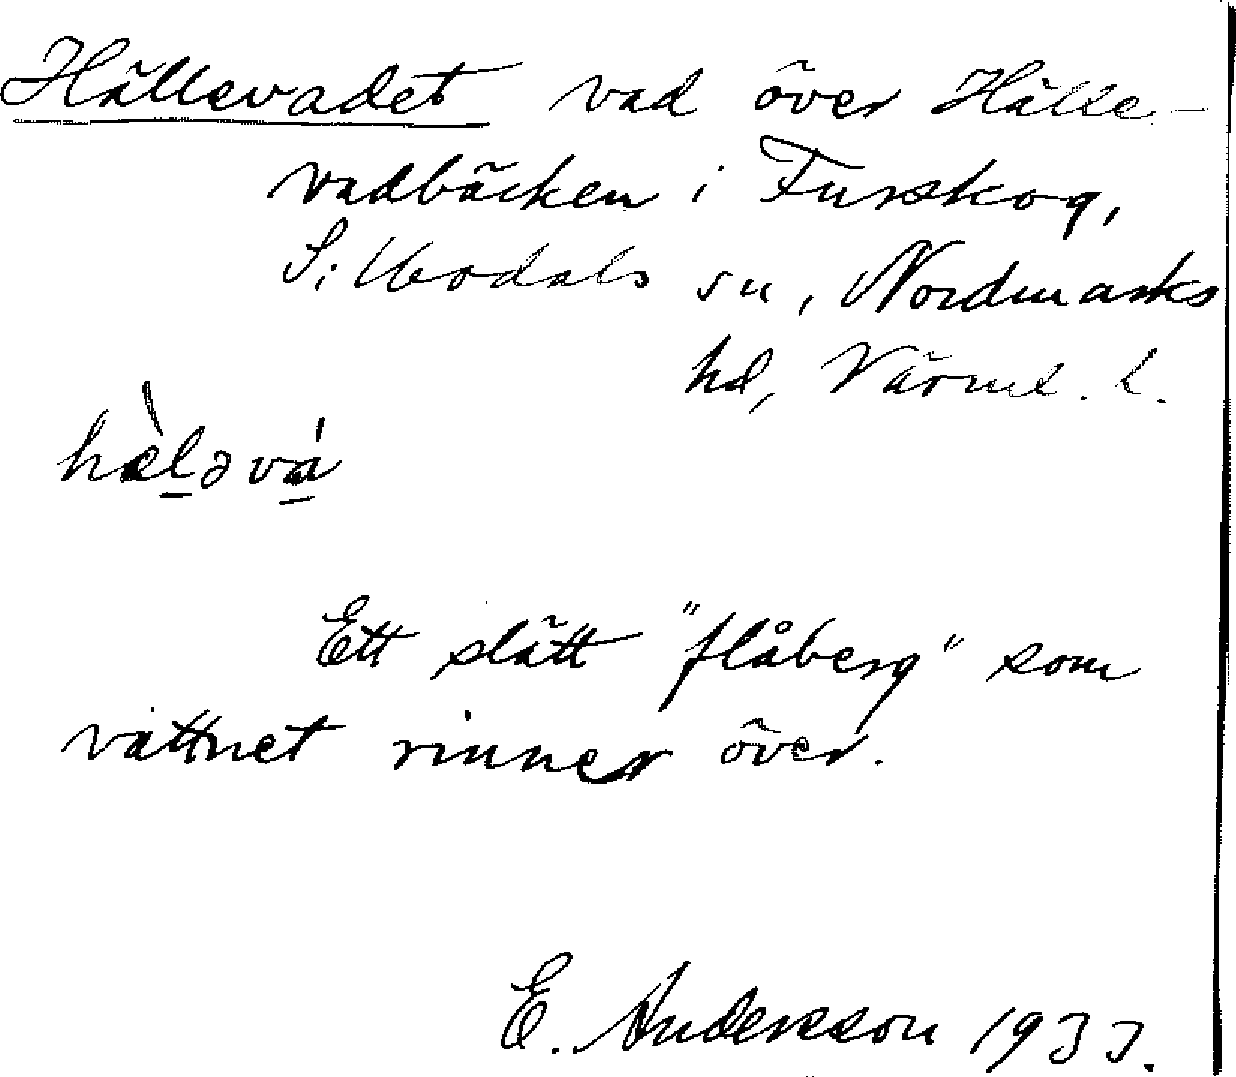 Hällevadet vad över Hälle-
vadbäcken i Furskog,
Sillbodals sn, Nordmarks
hd, Värml. l.
hæ̀l̲əvá̲
Ett slätt "flåberg" som
vattnet rinner över.
E. Andersson 1933.